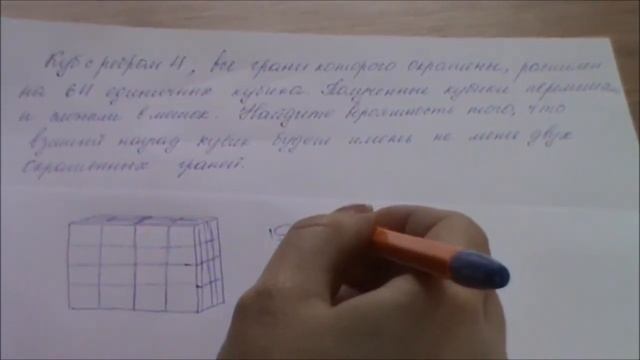 Куб с ребром 4, все грани которого окрашены, распилен
на 64 единичных кубика Полученные кубики перемешали
и сложили в мешок. Найдите вероятность того, что
взятый наугад кубик будет иметь не менее двух
окрашенных граней.